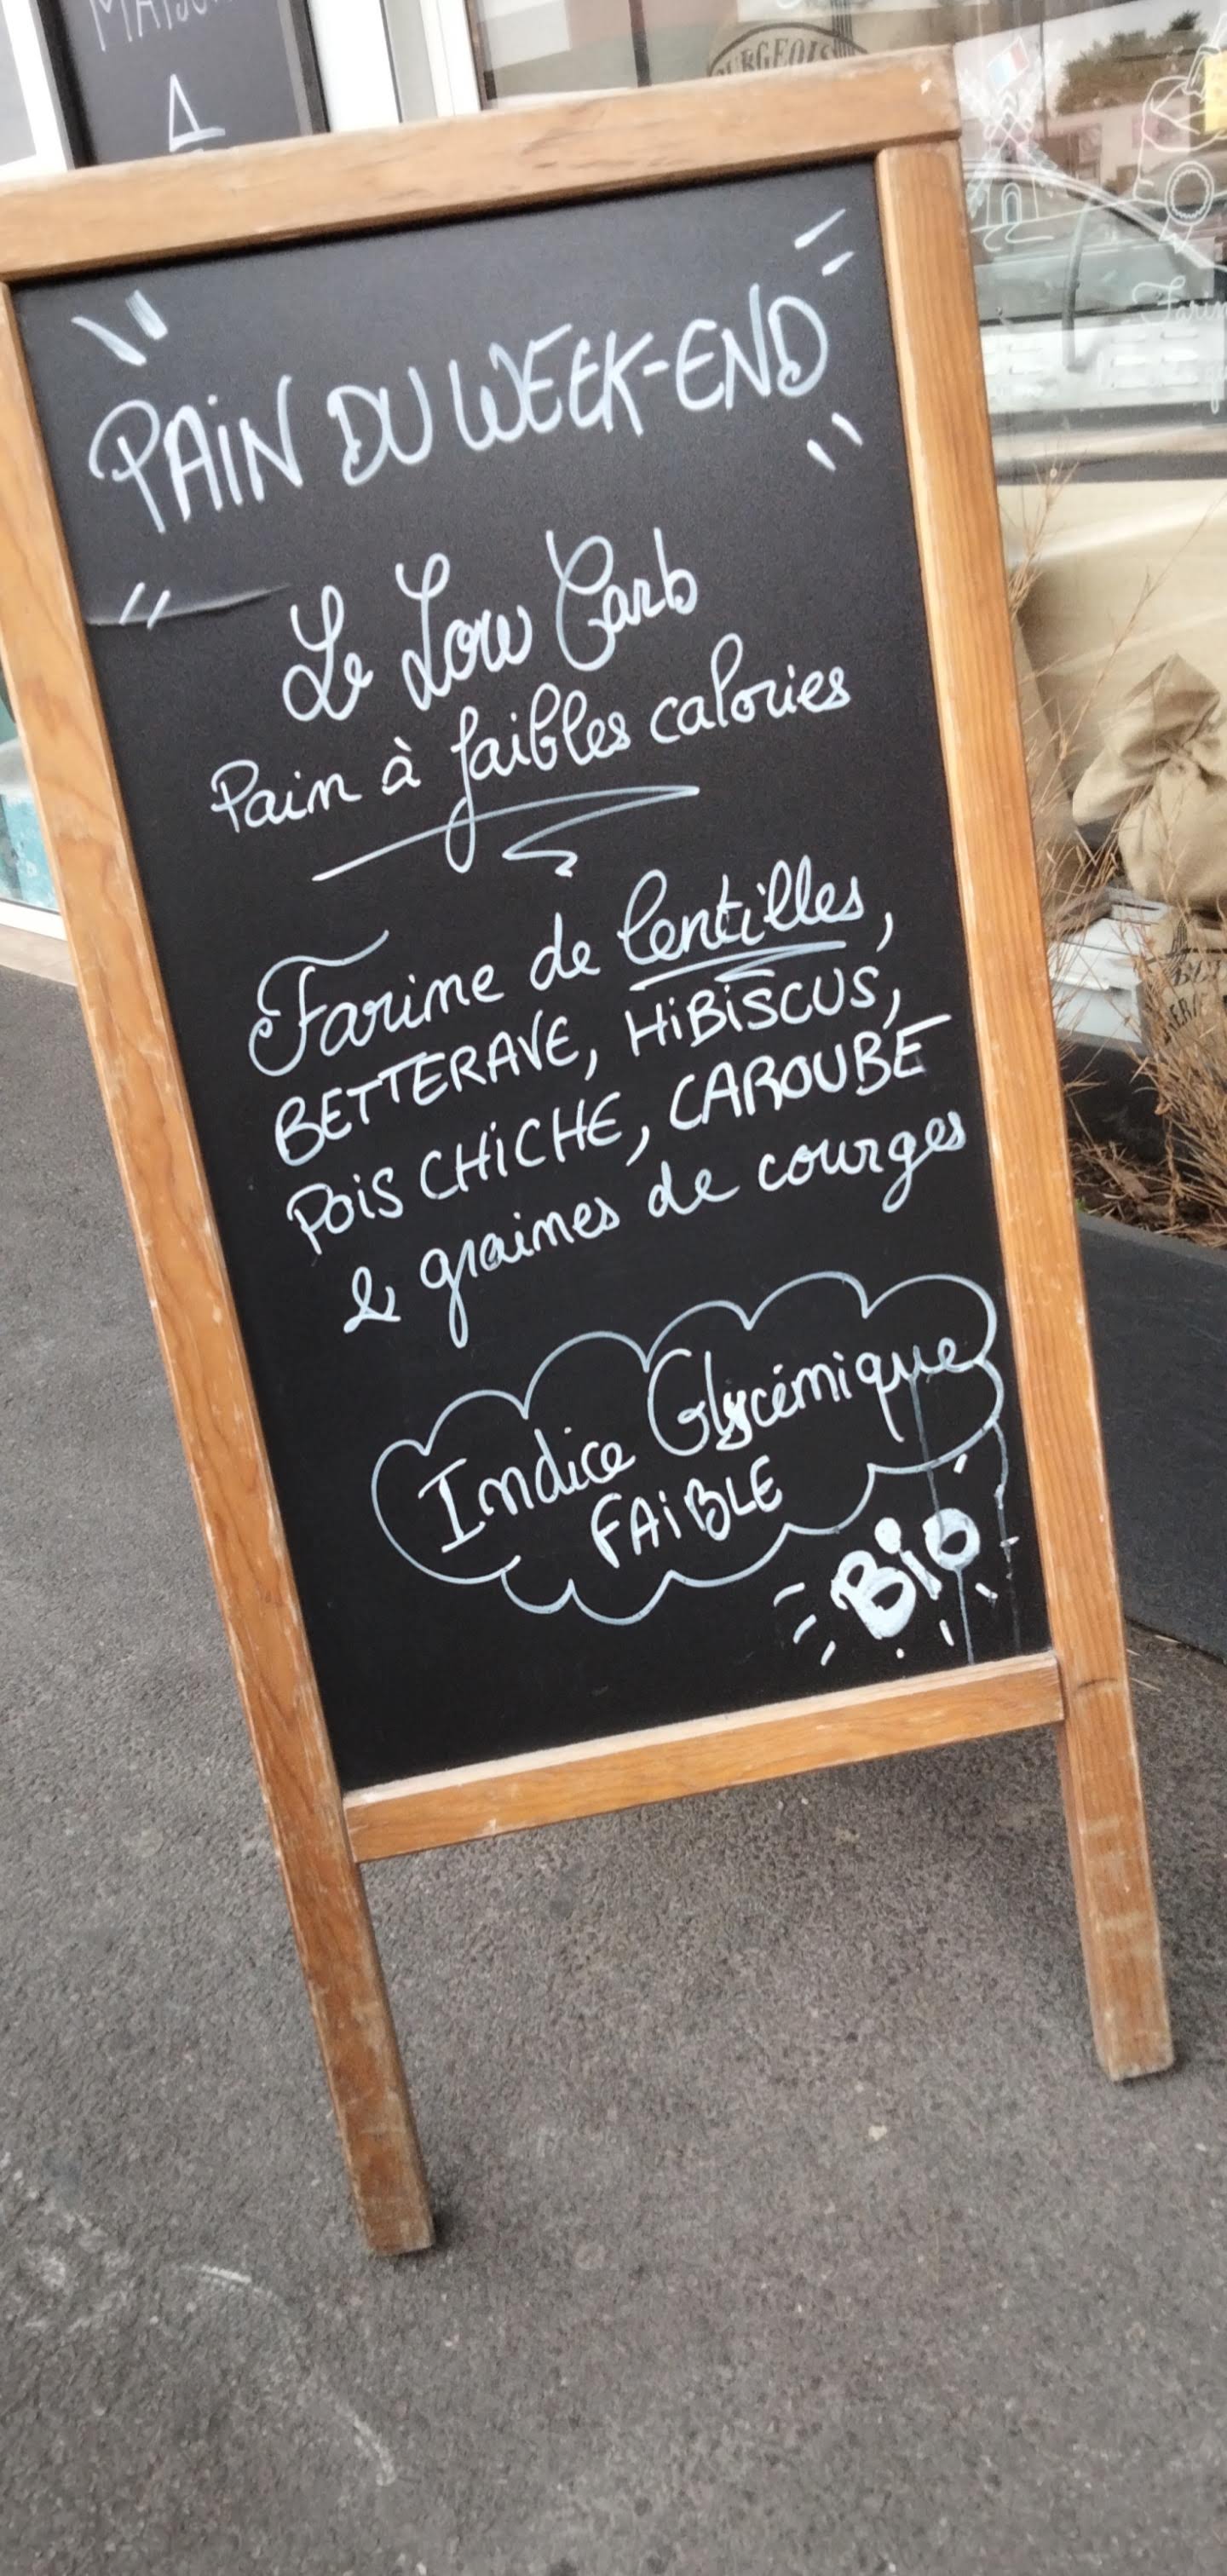 MAISON
A
BOURGEOIS
PAIN DU WEEK-END
Le Low Carb
Pain à faibles calories
Farine de lentilles,
BETTERAVE, HIBISCUS,
POIS CHICHE, CAROUBE
& graines de courges
Indice Glycémique
FAIBLE
BIO